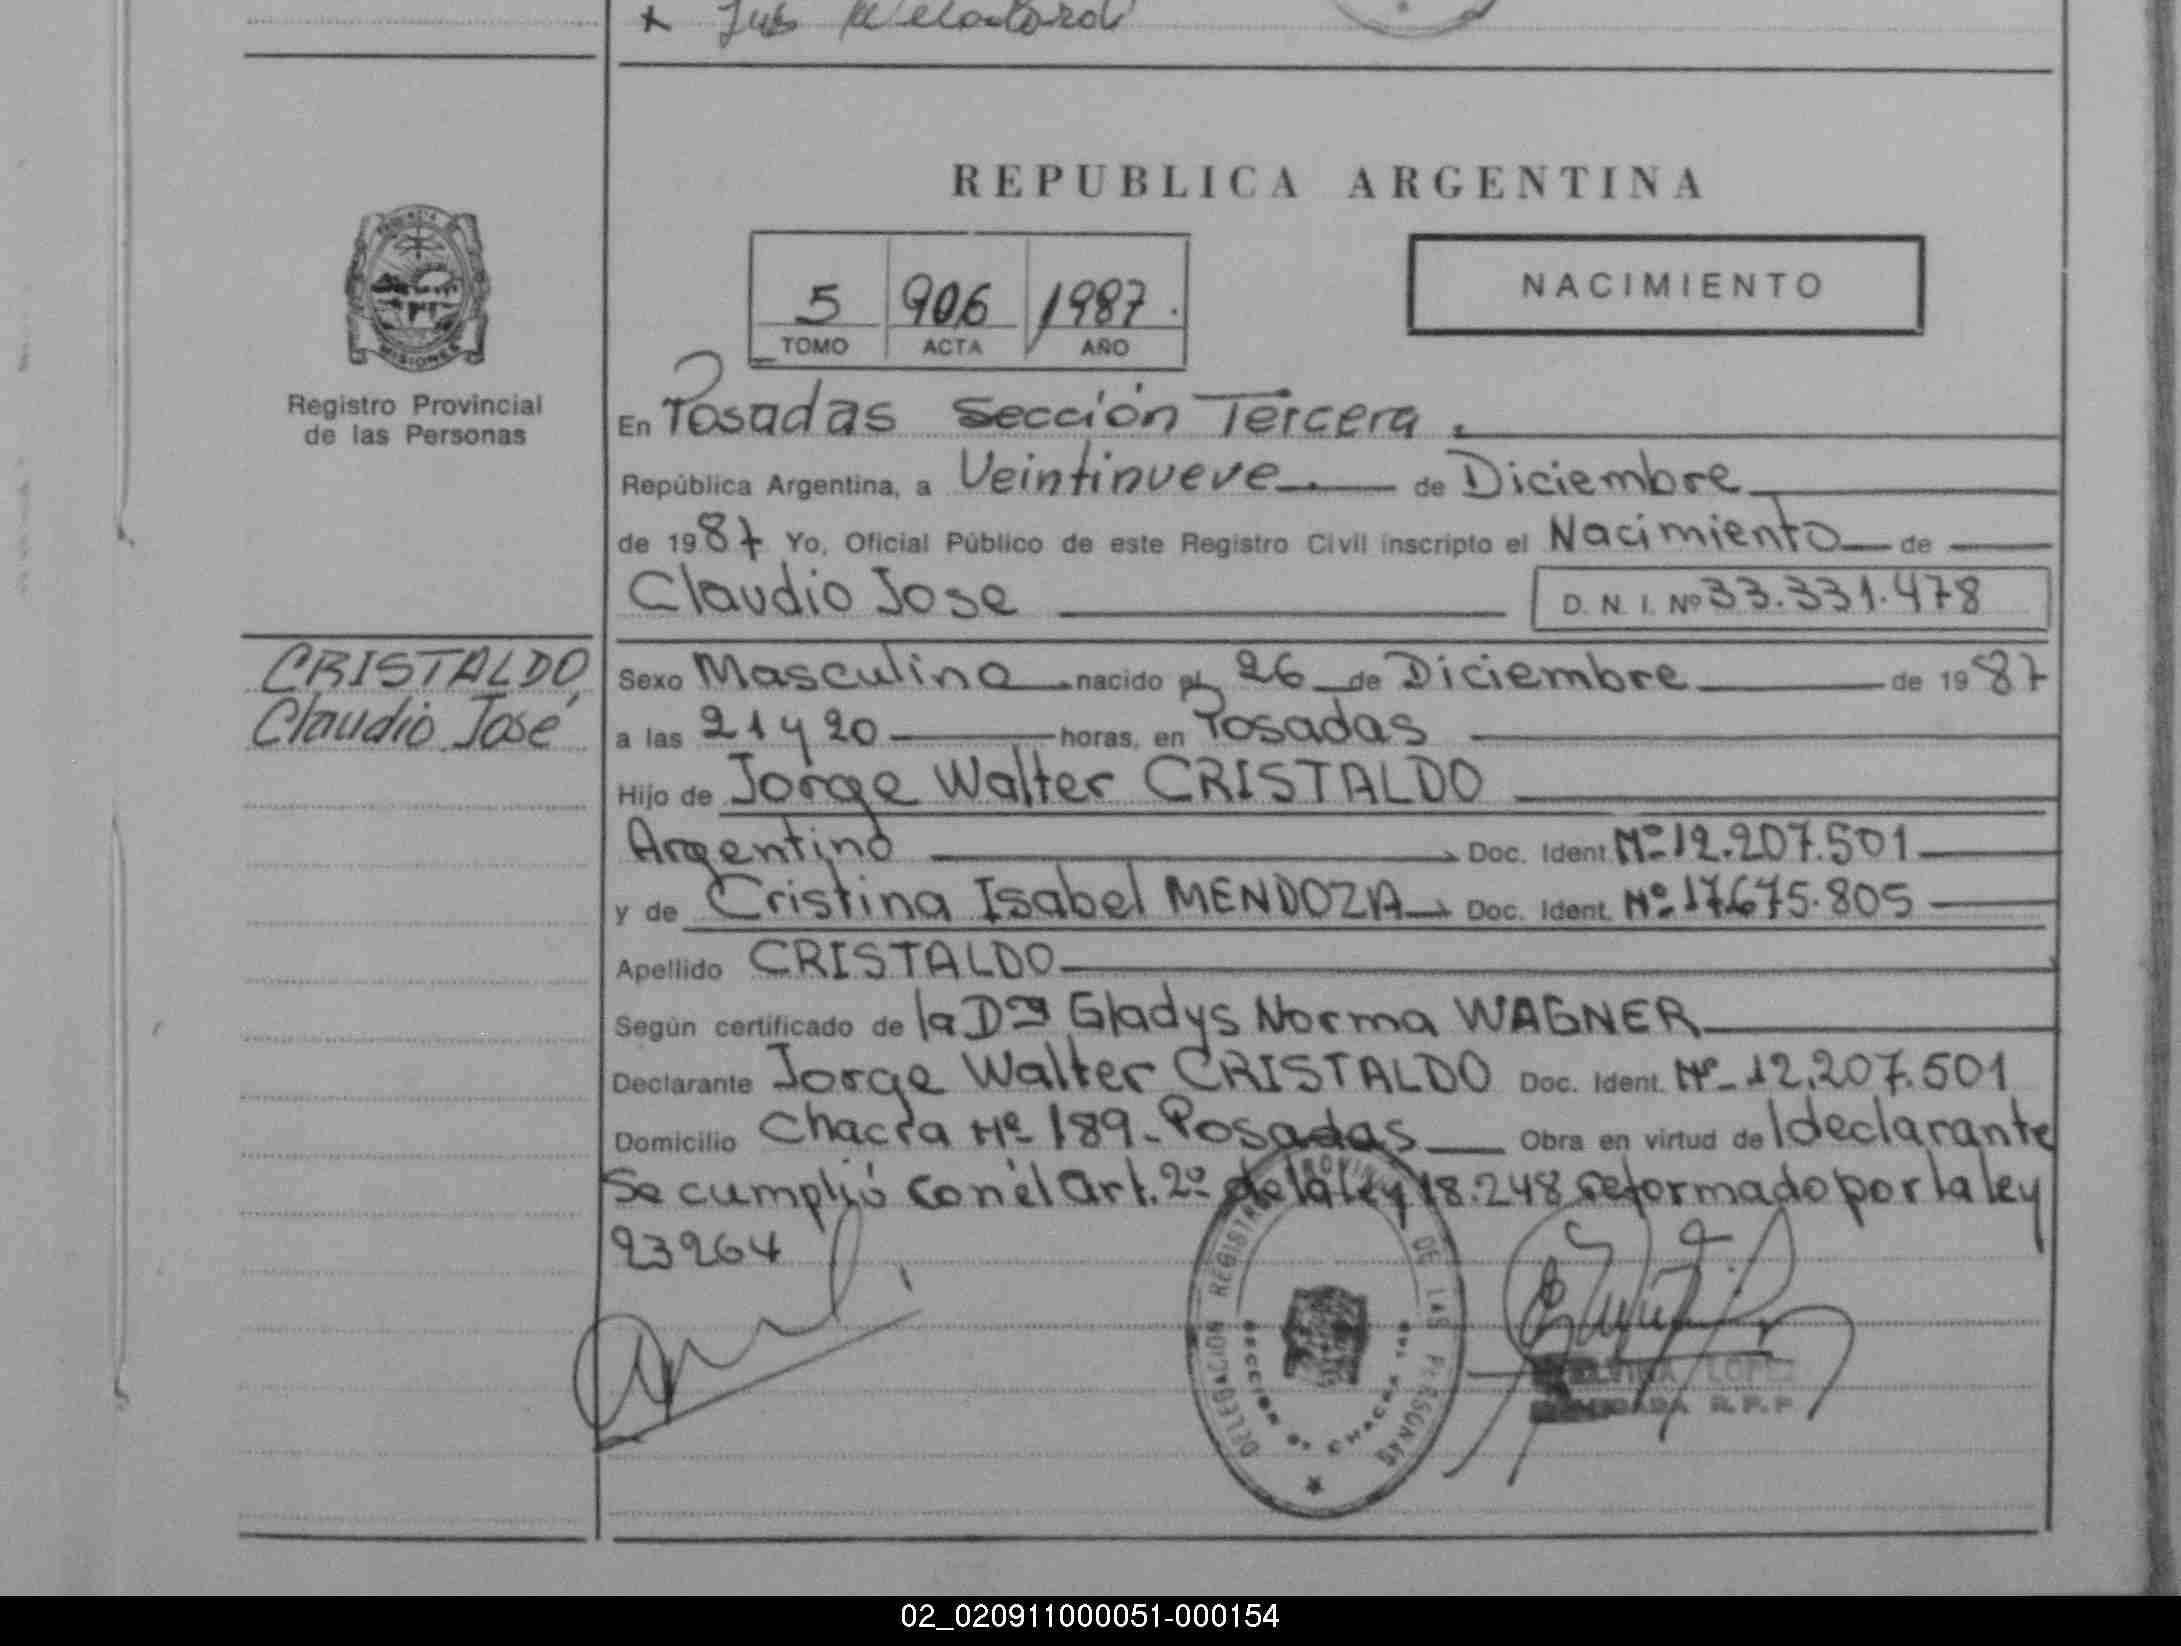 REPUBLICA ARGENTINA
5 906 1987.
TOMO ACTA AÑO
NACIMIENTO
MISIONES
Registro Provincial
de las Personas
En Posadas Sección Tercera.
República Argentina, a Veintinueve de Diciembre
de 1987 Yo, Oficial Público de este Registro Civil inscripto el Nacimiento de
Claudio Jose D. N. I. Nº 33.331.478
CRISTALDO
Claudio José
Sexo Masculino nacido el 26 de Diciembre de 1987
a las 21 y 20 horas, en Posadas
Hijo de Jorge Walter CRISTALDO
Argentino Doc. Ident. Nº 12.207.501
y de Cristina Isabel MENDOZA Doc. Ident. Nº 17.675.805
Apellido CRISTALDO
Según certificado de la Dra Gladys Norma WAGNER
Declarante Jorge Walter CRISTALDO Doc. Ident. Nº 12.207.501
Domicilio Chacra Nº 189 - Posadas Obra en virtud de l declarante
Se cumplió con el art. 2º de la ley 18.248 reformado por la ley
23264
DELEGACION REGISTRO PROVINCIAL DE LAS PERSONAS
LOPEZ
R. P. P
02_020911000051-000154